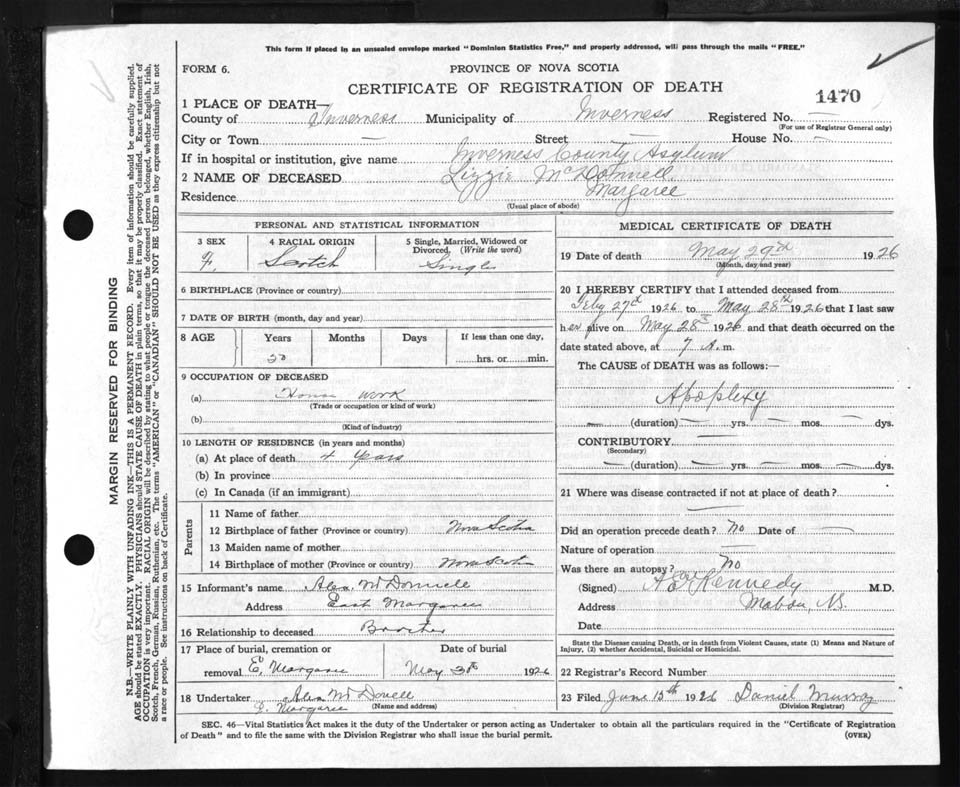 This form if placed in an unsealed envelope marked "Dominion Statistics Free," and properly addressed, will pass through the mails "FREE."
FORM 6.
PROVINCE OF NOVA SCOTIA
CERTIFICATE OF REGISTRATION OF DEATH
1470
1 PLACE OF DEATH—
County of Inverness Municipality of Inverness Registered No. —
(For use of Registrar General only)
City or Town — Street — House No. —
If in hospital or institution, give name Inverness County Asylum
2 NAME OF DECEASED Lizzie McDonnell
Residence Margaree
(Usual place of abode)
PERSONAL AND STATISTICAL INFORMATION
3 SEX
F.
4 RACIAL ORIGIN
Scotch
5 Single, Married, Widowed or Divorced, (Write the word)
Single
6 BIRTHPLACE (Province or country)
7 DATE OF BIRTH (month, day and year)
8 AGE Years Months Days If less one day,
50 hrs. or min.
9 OCCUPATION OF DECEASED
(a) House work
(Trade or occupation or kind of work)
(b)
(Kind of industry)
10 LENGTH OF RESIDENCE (in years and months)
(a) At place of death 4 years
(b) In province
(c) In Canada (if an immigrant)
Parents
11 Name of father
12 Birthplace of father (Province or country) Nova Scotia
13 Maiden name of mother
14 Birthplace of mother (Province or country) Nova Scotia
15 Informant's name Alex. McDonnell
Address East Margaree
16 Relationship to deceased Brother
17 Place of burial, cremation or removal E. Margaree
Date of burial
May 30th 1926
18 Undertaker Alex McDonell
E. Margaree (Name and address)
MEDICAL CERTIFICATE OF DEATH
19 Date of death May 29th 1926
(Month, day and year)
20 I HEREBY CERTIFY that I attended deceased from
Feby 27th 1926 to May 28th 1926 that I last saw
her alive on May 28th 1926 and that death occurred on the
date stated above, at 7 A. m.
The CAUSE of DEATH was as follows:—
Apoplexy
— (duration) — yrs. — mos. — dys.
CONTRIBUTORY —
(Secondary)
— (duration) — yrs. — mos. — dys.
21 Where was disease contracted if not at place of death?
—
Did an operation precede death? No Date of —
Nature of operation —
Was there an autopsy? No
(Signed) Kennedy M.D.
Address Mabou, N.S.
Date
State the Disease causing Death, or in death from Violent Causes, state (1) Means and Nature of
Injury, (2) whether Accidental, Suicidal or Homicidal.
22 Registrar's Record Number
23 Filed June 15th 1926 Daniel Murray
(Division Registrar)
SEC. 46—Vital Statistics Act makes it the duty of the Undertaker or person acting as Undertaker to obtain all the particulars required in the "Certificate of Registration
of Death" and to file the same with the Division Registrar who shall issue the burial permit. (OVER)
MARGIN RESERVED FOR BINDING
N.B.—WRITE PLAINLY WITH UNFADING INK—THIS IS A PERMANENT RECORD. Every item of information should be carefully supplied.
AGE should be stated EXACTLY. PHYSICIANS should STATE CAUSE OF DEATH in plain terms, so that it may be properly classified. Exact statement of
OCCUPATION is very important. RACIAL ORIGIN will be described by stating to what people or tongue the deceased person belonged, whether English, Irish,
Scotch, French, German, Russian, Ruthenian, etc. The terms "AMERICAN" or "CANADIAN" SHOULD NOT BE USED as they express citizenship but not
a race or people. See instructions on back of Certificate.